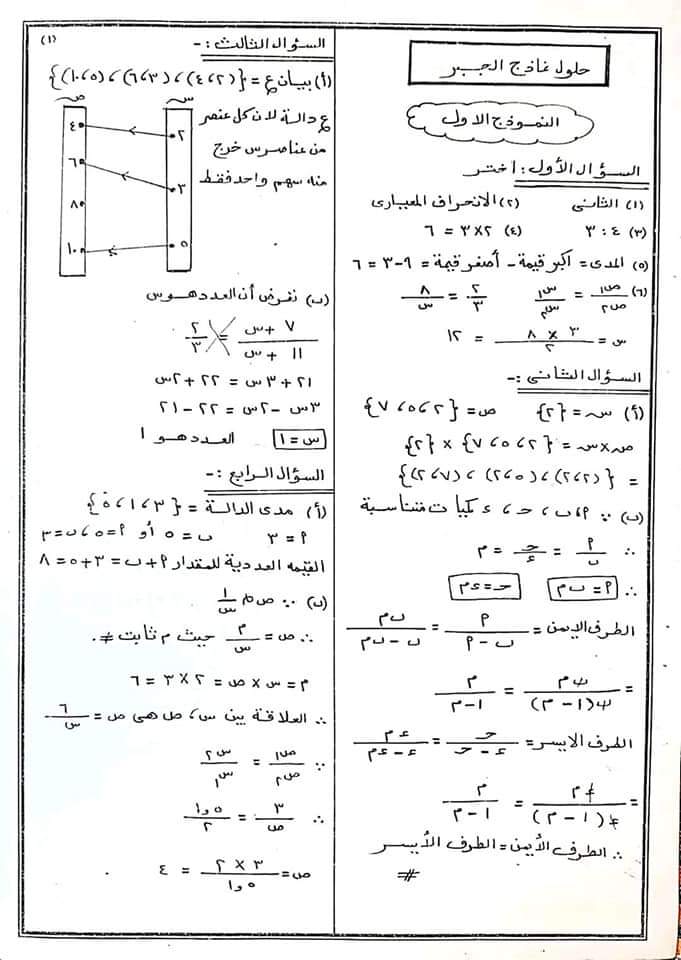 (١)
حلول نماذج الجبر
النموذج الاول
السؤال الأول: اختر
(١) الثانى (٢) الانحراف المعيارى
(٣) ٤ : ٣ (٤) ٢ × ٣ = ٦
(٥) المدى = اكبر قيمة - أصغر قيمة = ٩ - ٣ = ٦
(٦) ص١/ص٢ = س٢/س١ ٢/٣ = ٨/س
س = ٣ × ٨ / ٢ = ١٢
السؤال الثانى :-
(أ) س = {٢} ص = {٢، ٥، ٧}
ص × س = {٢، ٥، ٧} × {٢}
= {(٢، ٢)، (٥، ٢)، (٧، ٢)}
(ب) ∵ م، ب، ح، ء كميات متناسبة
∴ م/ب = ح/ء = م
∴ م = ب م ح = ء م
الطرف الايمن = م/(ب - م) = ب م/(ب - ب م)
= ب م/ب(١ - م) = م/(١ - م)
الطرف الايسر = ح/(ء - ح) = ء م/(ء - ء م)
= ء م/ء(١ - م) = م/(١ - م)
∴ الطرف الأيمن = الطرف الأيسر
#
السؤال الثالث :-
(أ) بيان ع = {(٢، ٤)، (٣، ٦)، (٥، ١٠)}
ع دالة لان كل عنصر
من عناصر س خرج
منه سهم واحد فقط
ص س
٤ ٢
٦ ٣
٨
١٠ ٥
(ب) نفرض أن العدد هو س
٧ + س / ١١ + س = ٢/٣
٢١ + ٣س = ٢٢ + ٢س
٣س - ٢س = ٢٢ - ٢١
س = ١ العدد هو ١
السؤال الرابع :-
(أ) مدى الدالة = {٣، ١، ٥}
م = ٣ ب = ٥ أو م = ٥، ب = ٣
القيمه العددية للمقدار م + ب = ٣ + ٥ = ٨
(ب) ∵ ص ∝ ١/س
∴ ص = م/س حيث م ثابت ≠ ٠
م = س × ص = ٢ × ٣ = ٦
∴ العلاقة بين س، ص هى ص = ٦/س
∵ ص١/ص٢ = س٢/س١
∴ ٣/ص = ١,٥/٢
ص = ٣ × ٢ / ١,٥ = ٤